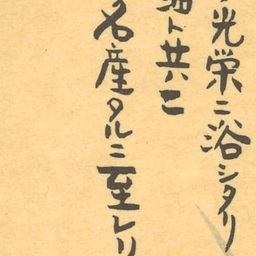 光栄ニ浴シタリ
油ト共ニ
名産タルニ至レリ